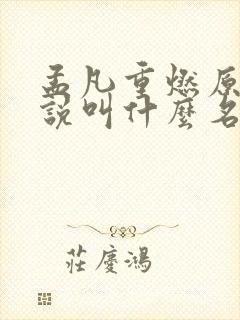 孟凡重燃原
說叫什麼名
莊慶鴻